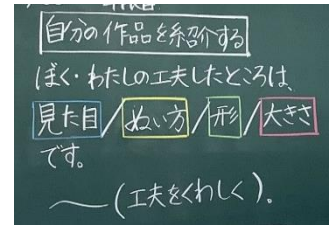 自分の作品を紹介する
ぼく・わたしの工夫したところは、
見た目/ぬい方/形/大きさ
です。
〜(工夫をくわしく)。